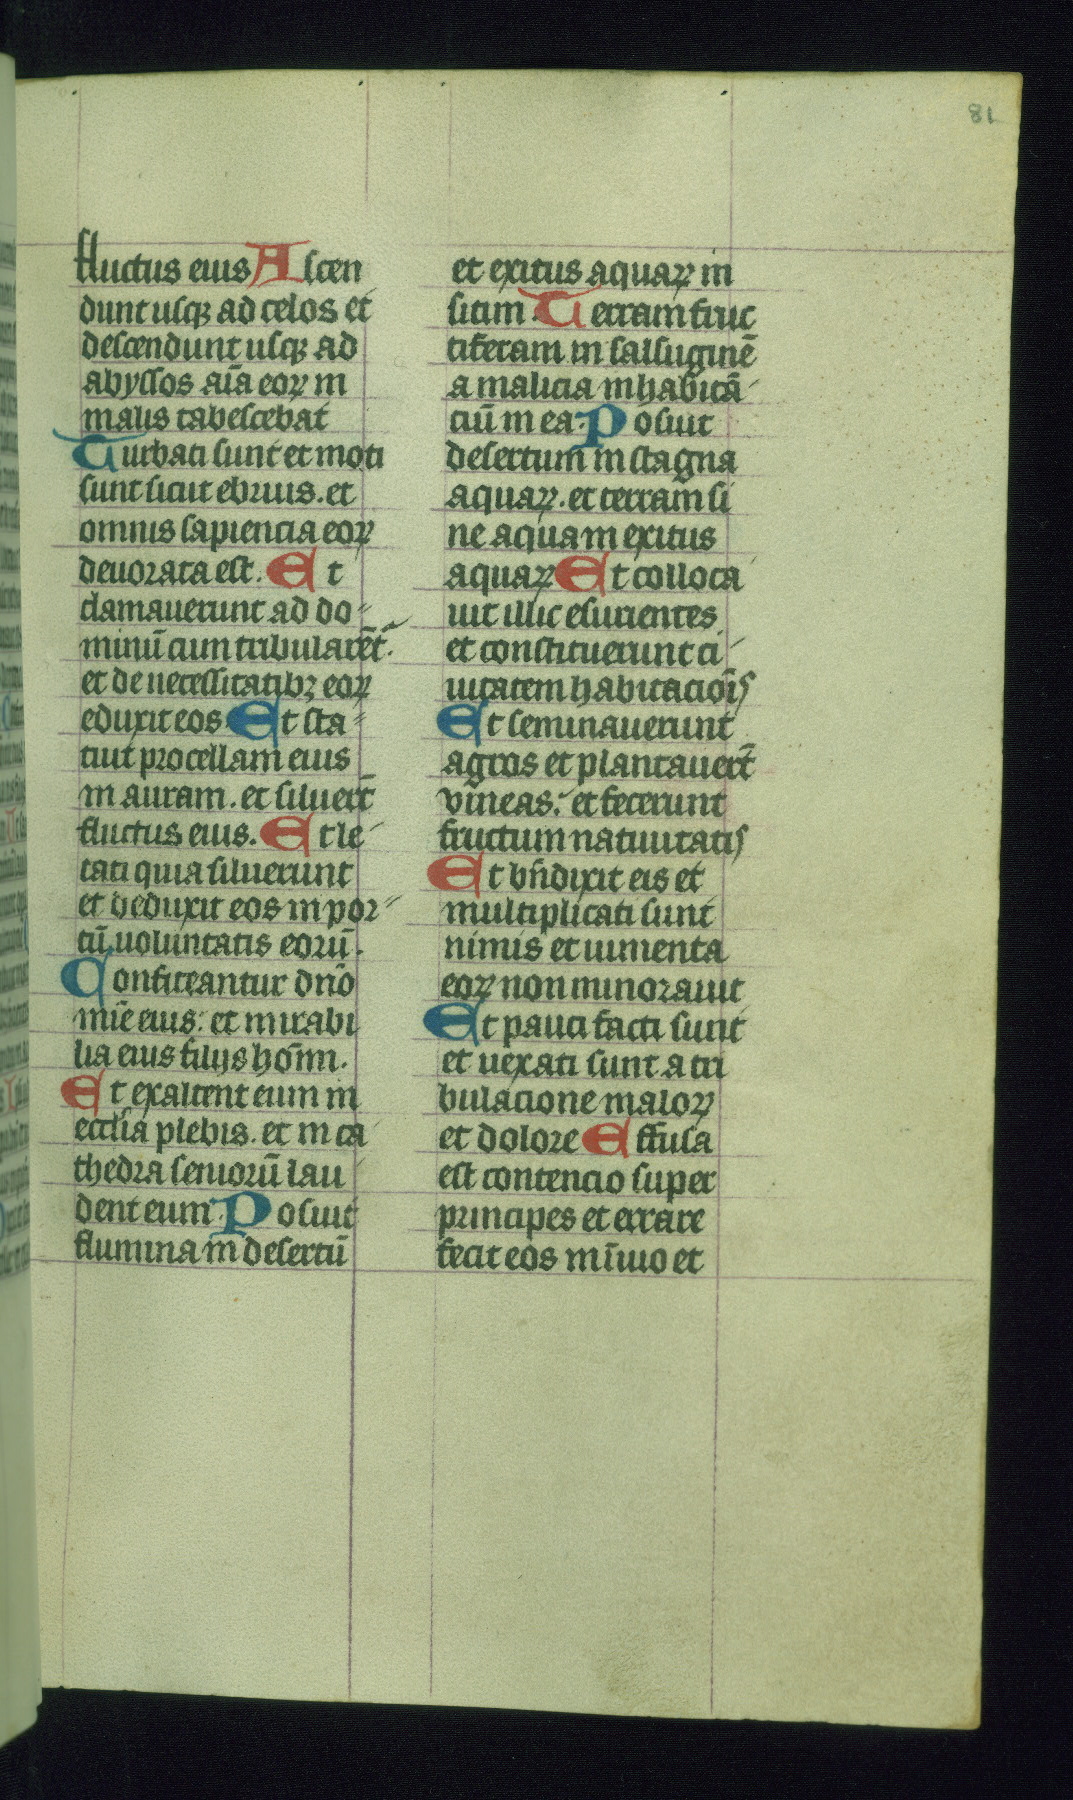 81
fluctus eius Ascen
dunt usqꝫ ad celos et
descendunt usqꝫ ad
abyssos aīa eoꝝ in
malis tabescebat
Turbati sunt et moti
sunt sicut ebrius. et
omnis sapiencia eoꝝ
deuorata est. Et
clamauerunt ad do⸗
minū cum tribularēt.
et de necessitatibꝫ eoꝝ
eduxit eos Et sta⸗
tuit procellam eius
in auram. et siluerūt
fluctus eius. Et le
tati quia siluerunt
et deduxit eos in por⸗
tū uoluntatis eorū.
Confiteantur dn̄o
mīe eius: et mirabi
lia eius filijs hoīm.
Et exaltent eum in
ecclīa plebis. et in ca
thedra seniorū lau
dent eum Posuit
flumina in desertū
et exitus aquaꝝ in
sitim. Terram fruc
tiferam in salsuginē
a malicia inhabitā
ciū in ea. Posuit
desertum in stagna
aquaꝝ. et terram si
ne aquam exitus
aquaꝝ Et colloca
uit illic esurientes
et constituerunt ci
uitatem habitacioīs
Et seminauerunt
agros et plantauerūt
vineas: et fecerunt
fructum natiuitatis
Et bn̄dixit eis et
multiplicati sunt
nimis et iumenta
eoꝝ non minorauit
Et pauci facti sunt
et uexati sunt a tri
bulacione maloꝝ
et dolore Effusa
est contencio super
principes et errare
fecit eos in īuio et